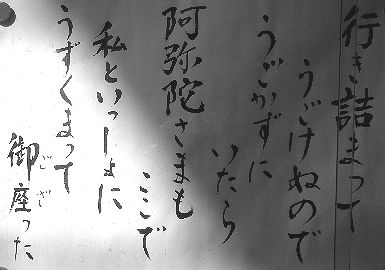 行き詰まって
うごけぬので
うごかずに
いたら
阿弥陀さまも
ここで
私といっしょに
うずくまって
御座った
ござ